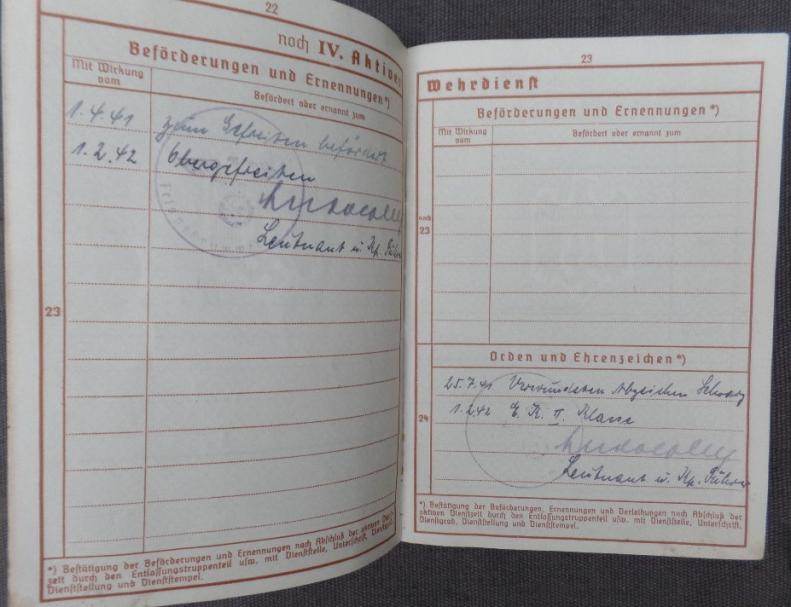 22
noch IV. Aktiver
Beförderungen und Ernennungen*)
Mit Wirkung vom
Befördert oder ernannt zum
1.4.41 zum Gefreiten befördert
1.2.42 Obergefreiten
Leutnant u. Kp. Führer
23
*) Bestätigung der Beförderungen und Ernennungen nach Abschluß der aktiven Dienst-
zeit durch den Entlassungstruppenteil usw. mit Dienststelle, Unterschrift, Dienstgrad,
Dienststellung und Dienststempel.
23
Wehrdienst
Beförderungen und Ernennungen*)
Mit Wirkung vom
Befördert oder ernannt zum
noch
23
Orden und Ehrenzeichen*)
25.7.41 Verwundeten Abzeichen Schwarz
1.2.42 E. K. II. Klasse
Leutnant u. Kp. Führer
24
*) Bestätigung der Beförderungen, Ernennungen und Verleihungen nach Abschluß der
aktiven Dienstzeit durch den Entlassungstruppenteil usw. mit Dienststelle, Unterschrift,
Dienstgrad, Dienststellung und Dienststempel.